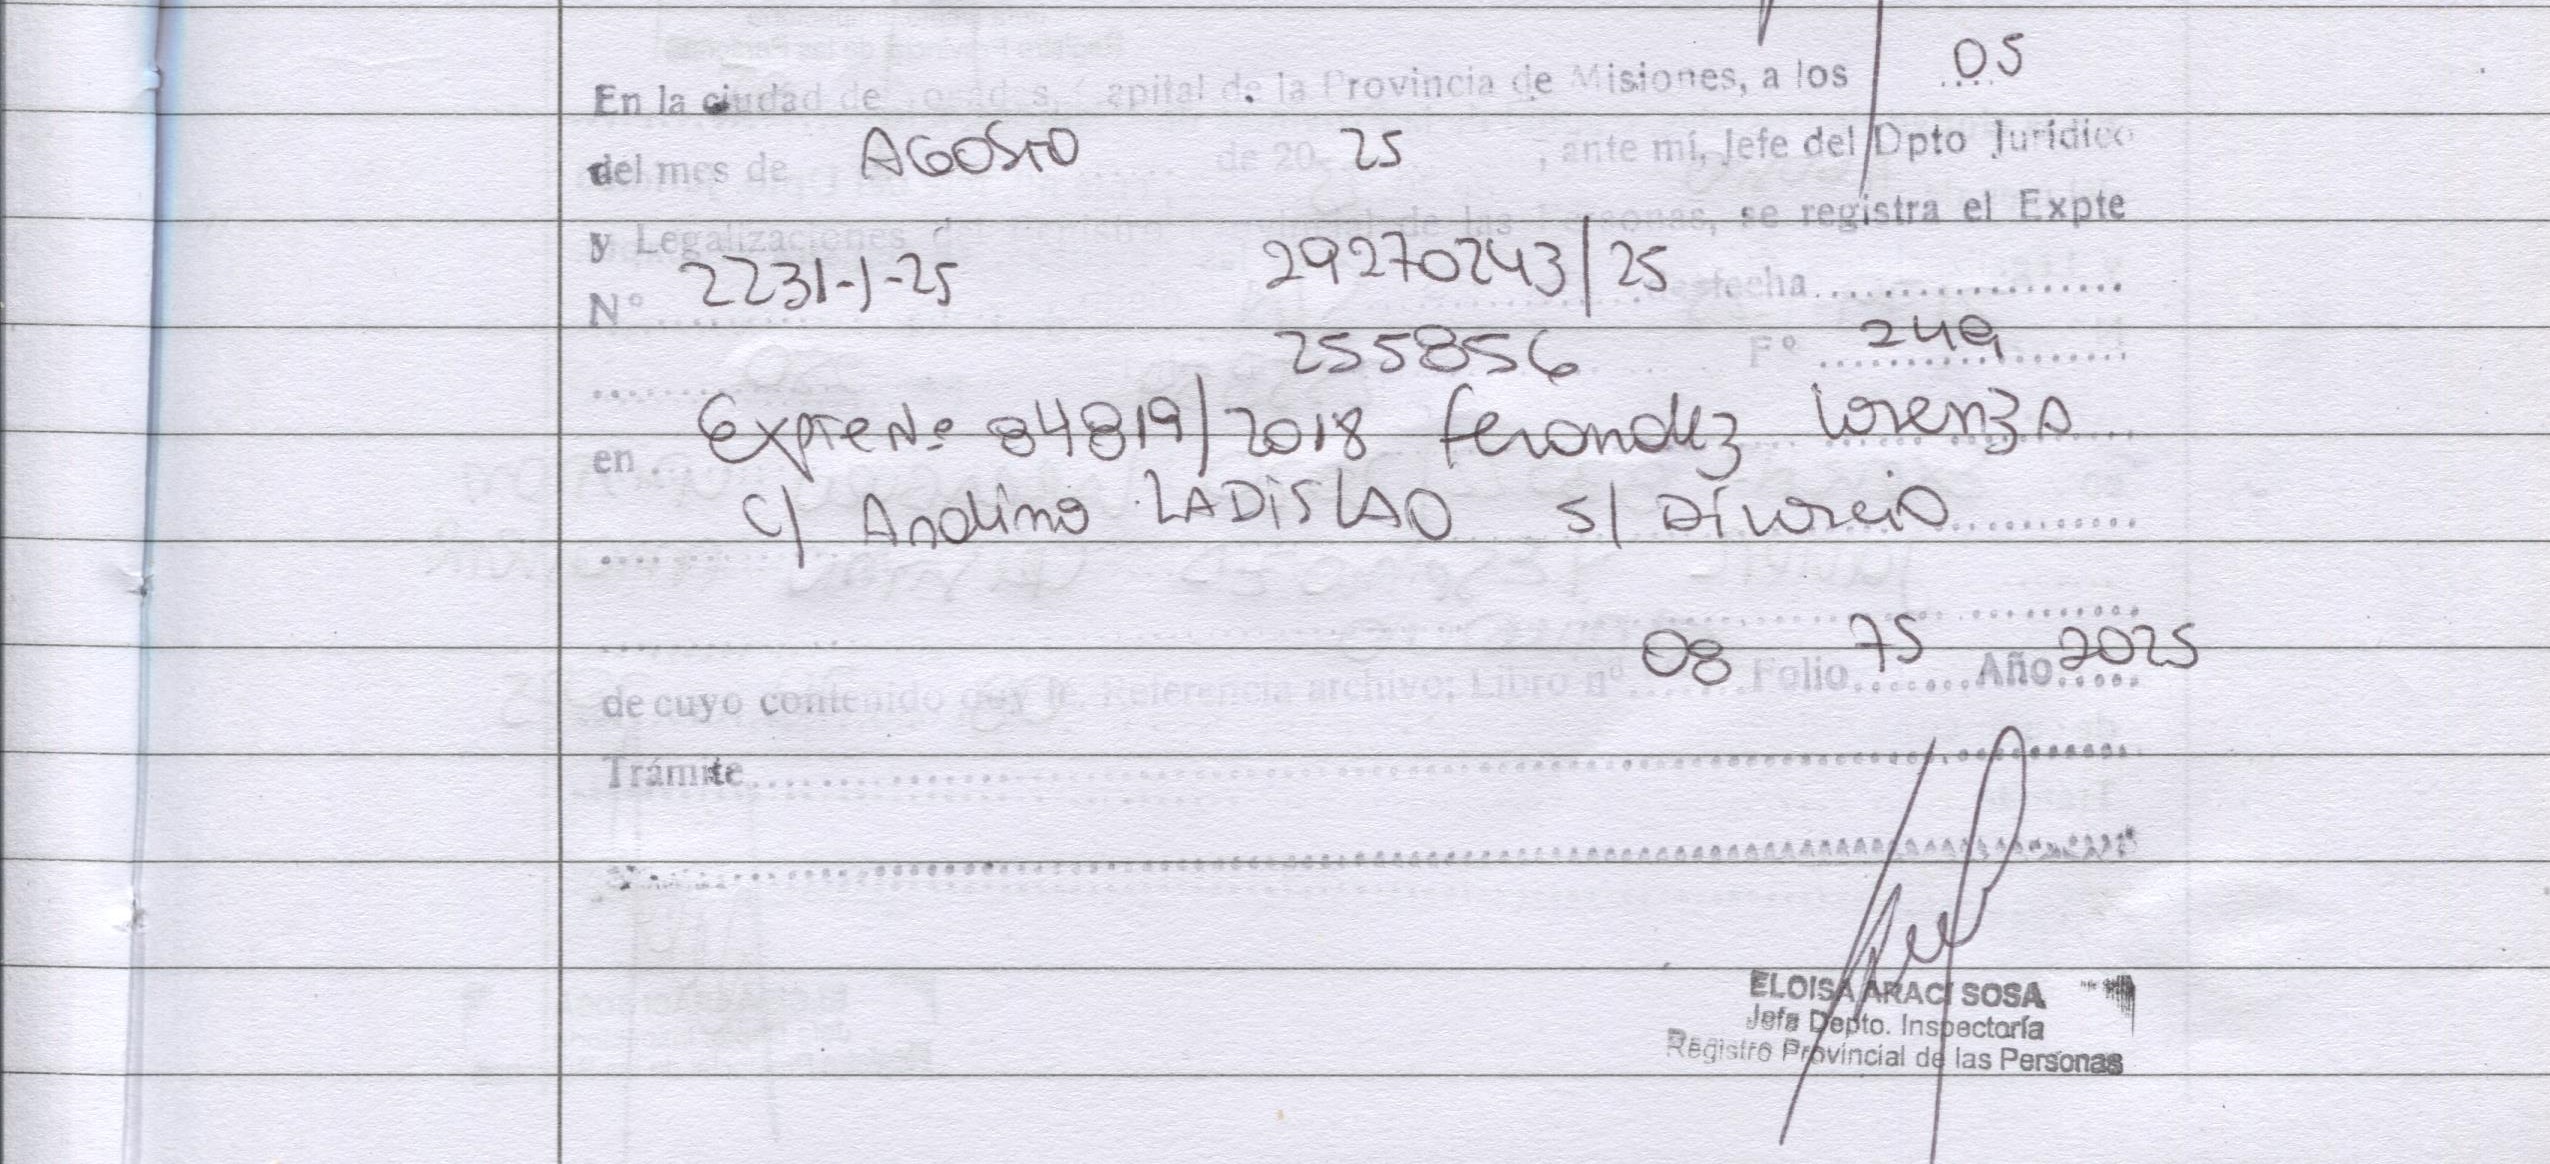 En la ciudad de Posadas, Capital de la Provincia de Misiones, a los 05
del mes de AGOSTO de 20 25, ante mí, Jefe del Dpto Jurídico
y Legalizaciones del Registro Provincial de las Personas, se registra el Expte
Nº 2231-J-25 29270243/25 fecha
255856 Fº 249
en Expte Nº 84819/2018 Ferandez Lorenza
c/ Andino LADISLAO s/ Divorcio
de cuyo contenido doy fe. Referencia archivo; Libro nº 08 Folio 75 Año 2025
Trámite
ELOISA ARACI SOSA
Jefa Depto. Inspectoría
Registro Provincial de las Personas